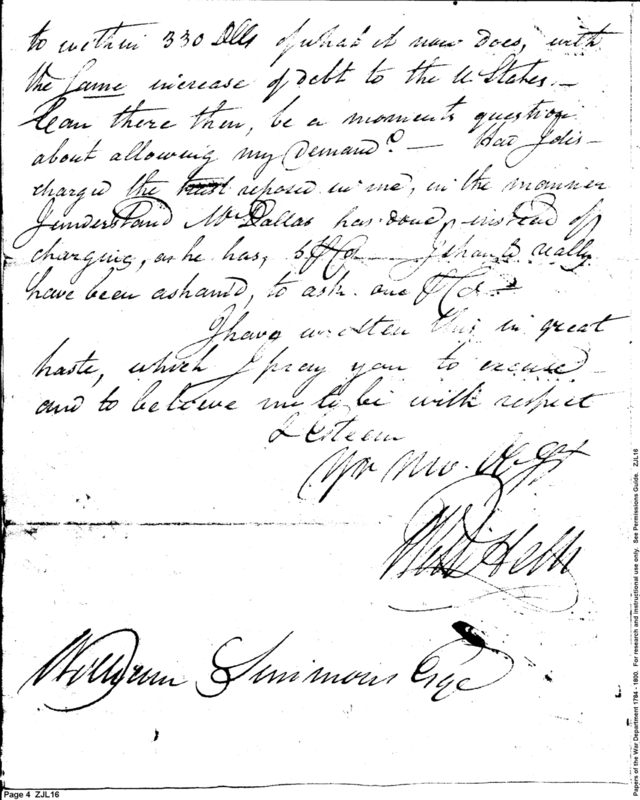 to within 330 Dlls of what it now does, with
the Same increase of debt to the U States.—
Can there then, be a moments question
about allowing my demand? — Had I dis-
charged the trust reposed in me, in the manner
I understand Mr Dallas has done, instead of
charging, as he has, 5 — I should really
have been asham'd, to ask one
I have written this in great
haste, which I pray you to excuse
and to believe me to be with respect
& Esteem
Yr Mo. Ob St

William Simmons Esqe
Page 4 ZJL16
Papers of the War Department 1784 - 1800. For research and instructional use only. See Permissions Guide. ZJL16